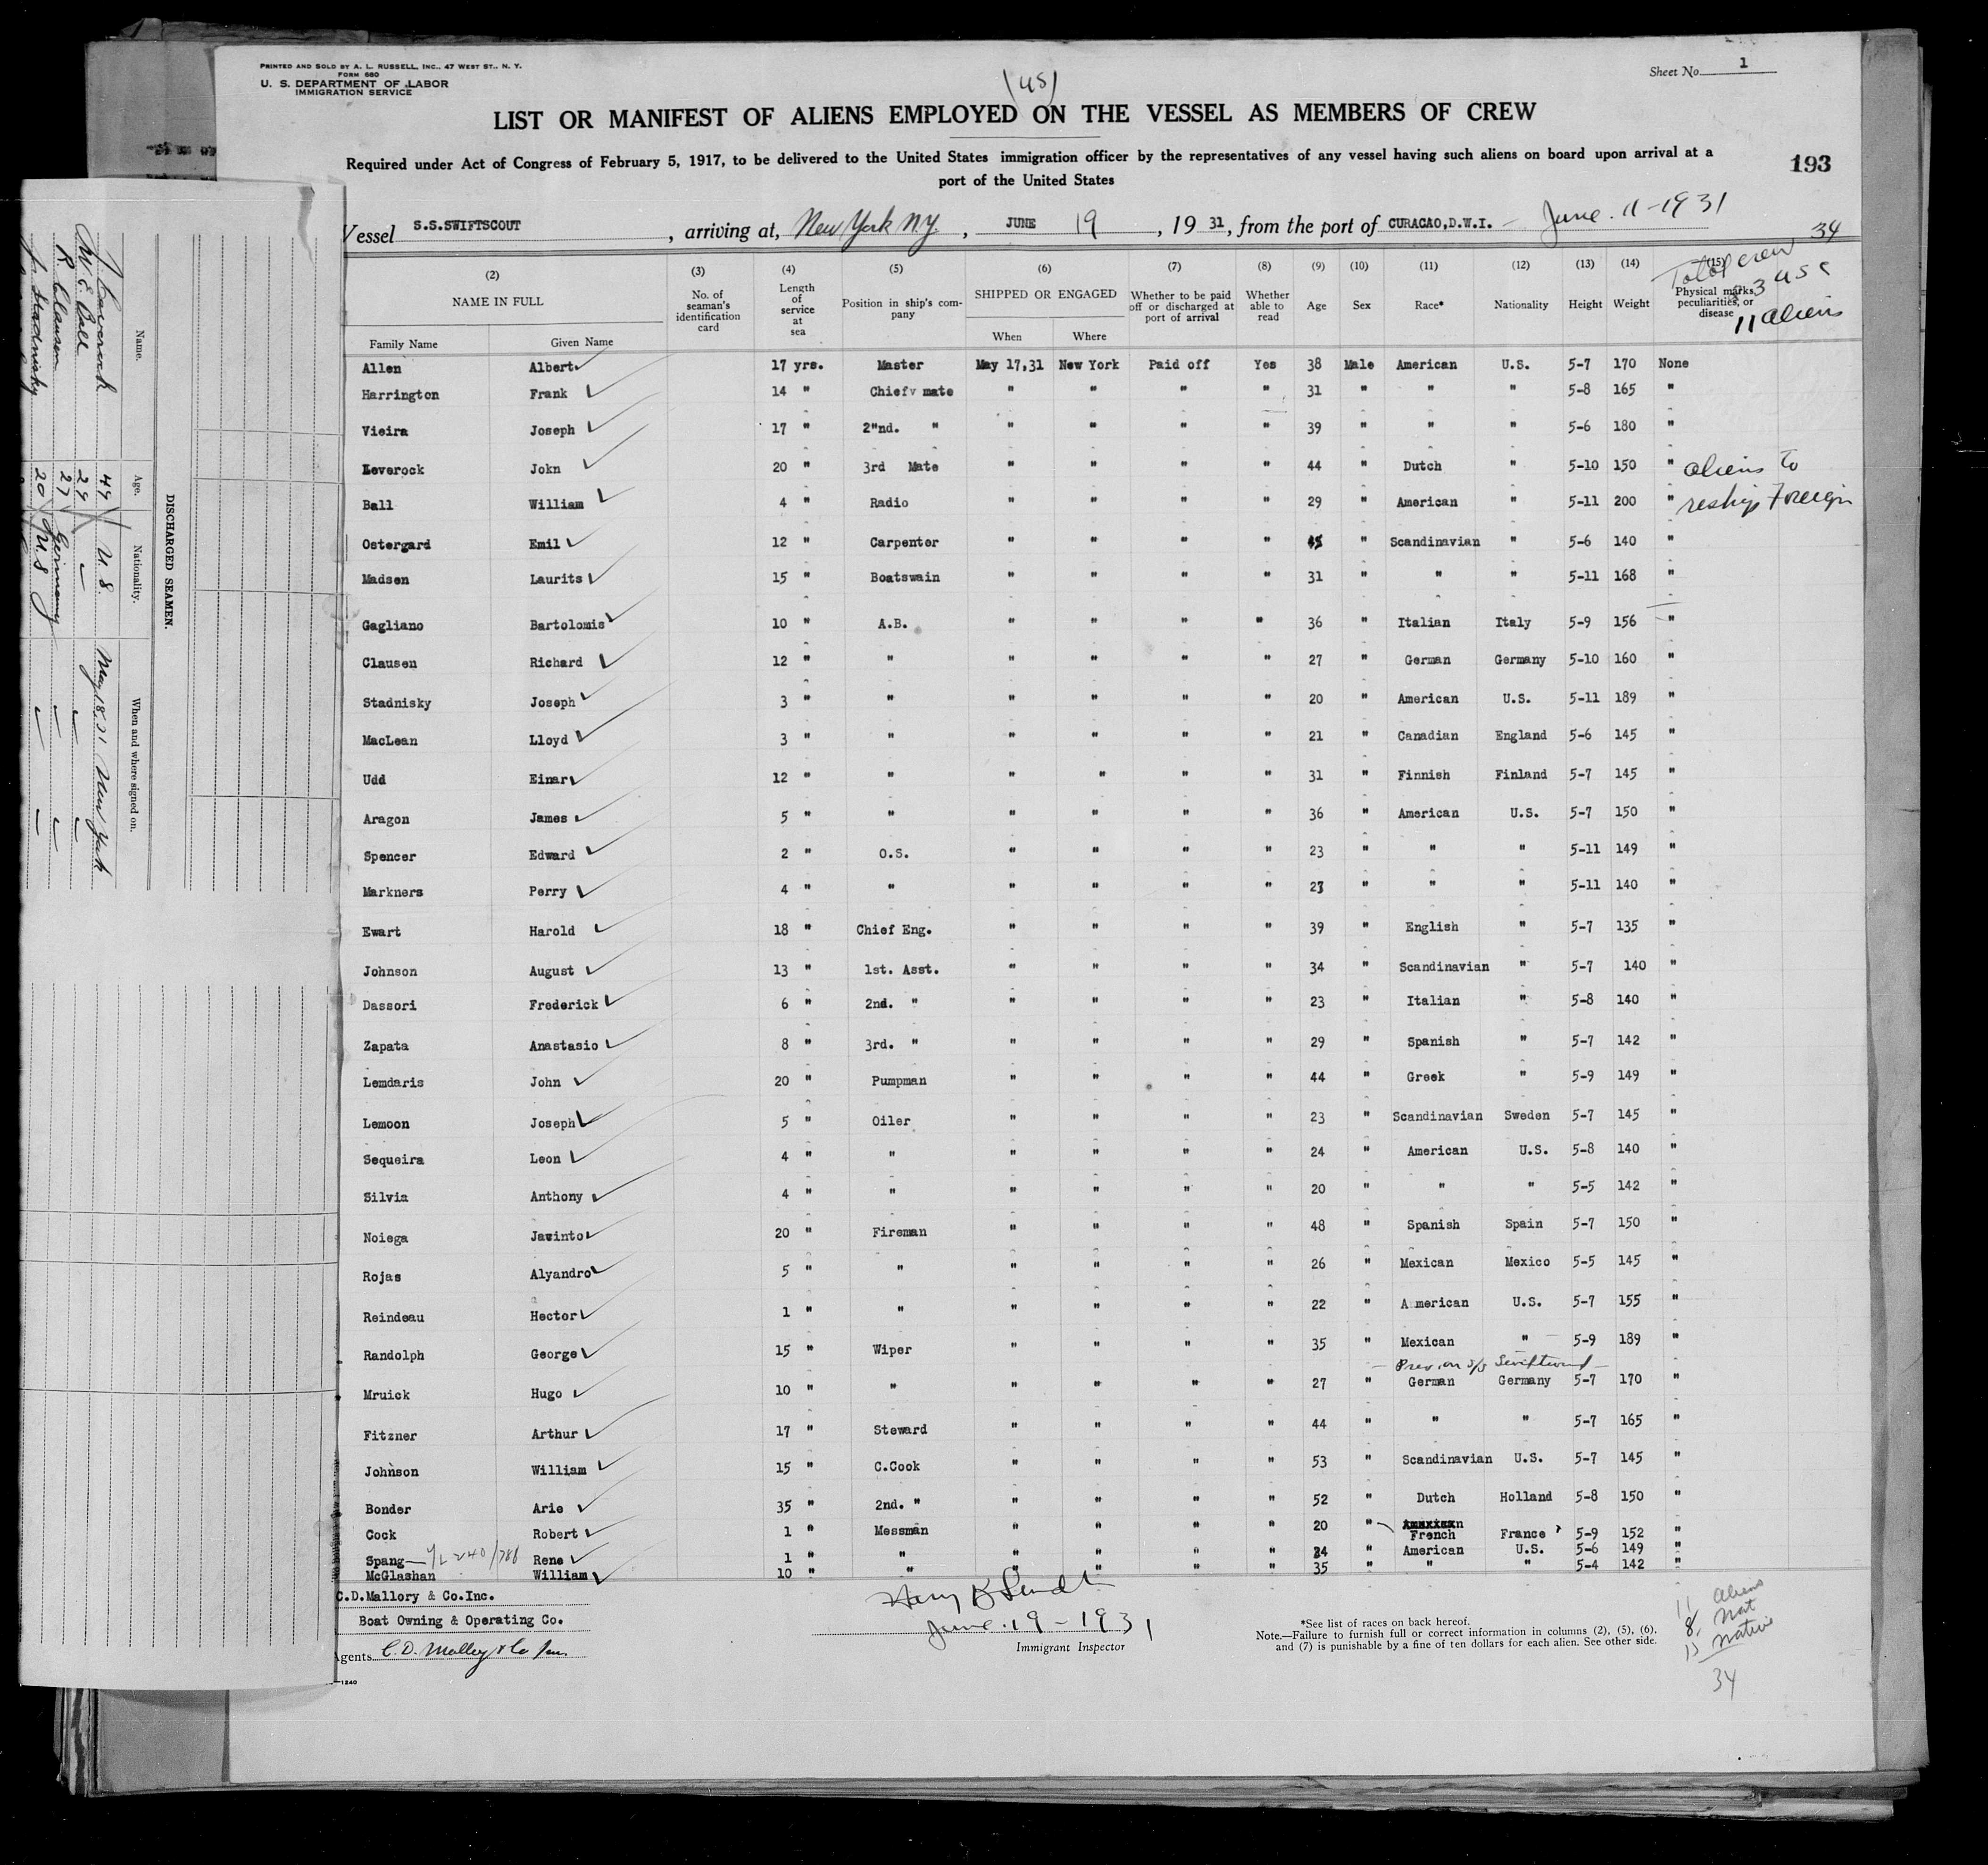 PRINTED AND SOLD BY A. L. RUSSELL, INC., 47 WEST ST., N. Y.
FORM 680
U. S. DEPARTMENT OF LABOR
IMMIGRATION SERVICE
(45)
Sheet No. 1
LIST OR MANIFEST OF ALIENS EMPLOYED ON THE VESSEL AS MEMBERS OF CREW
Required under Act of Congress of February 5, 1917, to be delivered to the United States immigration officer by the representatives of any vessel having such aliens on board upon arrival at a
port of the United States
193
Vessel S.S.SWIFTSCOUT, arriving at, New York N.Y., JUNE 19, 1931, from the port of CURACAO,D.W.I. - June. 11-1931
34
Total crew
11 aliens
(2) (3) (4) (5) (6) (7) (8) (9) (10) (11) (12) (13) (14) (15)
NAME IN FULL Family Name Given Name No. of seaman's identification card Length of service at sea Position in ship's company SHIPPED OR ENGAGED When Where Whether to be paid off or discharged at port of arrival Whether able to read Age Sex Race* Nationality Height Weight Physical marks, peculiarities, or disease
Allen Albert 17 yrs. Master May 17,31 New York Paid off Yes 38 Male American U.S. 5-7 170 None
Harrington Frank 14 " Chiefv mate " " " " 31 " " " 5-8 165 "
Vieira Joseph 17 " 2"nd. " " " " " 39 " " " 5-6 180 "
Leverock Jokn 20 " 3rd Mate " " " " 44 " Dutch " 5-10 150 " aliens to
Ball William 4 " Radio " " " " 29 " American " 5-11 200 " reship Foreign
Ostergard Emil 12 " Carpenter " " " " 45 " Scandinavian " 5-6 140 "
Madsen Laurits 15 " Boatswain " " " " 31 " " " 5-11 168 "
Gagliano Bartolomis 10 " A.B. " " " " 36 " Italian Italy 5-9 156 "
Clausen Richard 12 " " " " " " 27 " German Germany 5-10 160 "
Stadnisky Joseph 3 " " " " " " 20 " American U.S. 5-11 189 "
MacLean Lloyd 3 " " " " " " 21 " Canadian England 5-6 145 "
Udd Einar 12 " " " " " " 31 " Finnish Finland 5-7 145 "
Aragon James 5 " " " " " " 36 " American U.S. 5-7 150 "
Spencer Edward 2 " O.S. " " " " 23 " " " 5-11 149 "
Markners Perry 4 " " " " " " 23 " " " 5-11 140 "
Ewart Harold 18 " Chief Eng. " " " " 39 " English " 5-7 135 "
Johnson August 13 " 1st. Asst. " " " " 34 " Scandinavian " 5-7 140 "
Dassori Frederick 6 " 2nd. " " " " " 23 " Italian " 5-8 140 "
Zapata Anastasio 8 " 3rd. " " " " " 29 " Spanish " 5-7 142 "
Lemdaris John 20 " Pumpman " " " " 44 " Greek " 5-9 149 "
Lemoon Joseph 5 " Oiler " " " " 23 " Scandinavian Sweden 5-7 145 "
Sequeira Leon 4 " " " " " " 24 " American U.S. 5-8 140 "
Silvia Anthony 4 " " " " " " 20 " " " 5-5 142 "
Noiega Javinto 20 " Fireman " " " " 48 " Spanish Spain 5-7 150 "
Rojas Alyandro 5 " " " " " " 26 " Mexican Mexico 5-5 145 "
Reindeau Hector 1 " " " " " " 22 " American U.S. 5-7 155 "
Randolph George 15 " Wiper " " " " 35 " Mexican " 5-9 189 "
Mruick Hugo 10 " " " " " " 27 " German Germany 5-7 170 "
Fitzner Arthur 17 " Steward " " " " 44 " " " 5-7 165 "
Johnson William 15 " C.Cook " " " " 53 " Scandinavian U.S. 5-7 145 "
Bonder Arie 35 " 2nd. " " " " " 52 " Dutch Holland 5-8 150 "
Cock Robert 1 " Messman " " " " 20 " French France 5-9 152 "
Spang Rene 1 " " " " " " 24 " American U.S. 5-6 149 "
McGlashan William 10 " " " " " " 35 " " " 5-4 142 "
C.D.Mallory & Co.Inc.
Boat Owning & Operating Co.
Agents C. D. Mallory & Co Inc.
—1240
June. 19-1931
Immigrant Inspector
*See list of races on back hereof.
Note.—Failure to furnish full or correct information in columns (2), (5), (6),
and (7) is punishable by a fine of ten dollars for each alien. See other side.
11 aliens
8 Nat
15 Native
34
DISCHARGED SEAMEN.
Name. Age. Nationality. When and where signed on.
J Leverock 44 U.S. May 18.31 New York
W. E. Ball 29 — — —
R. Clausen 27 Germany — —
J. Stadnisky 20 U.S — —